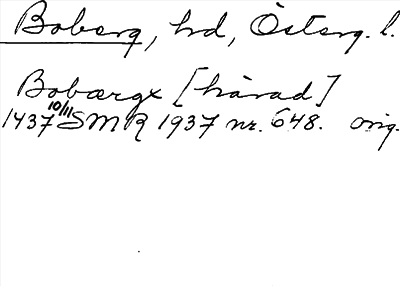 Boberg, hd, Österg. l.
Bobærgx [härad]
1437 10/11 SMR 1937 nr. 648. orig.